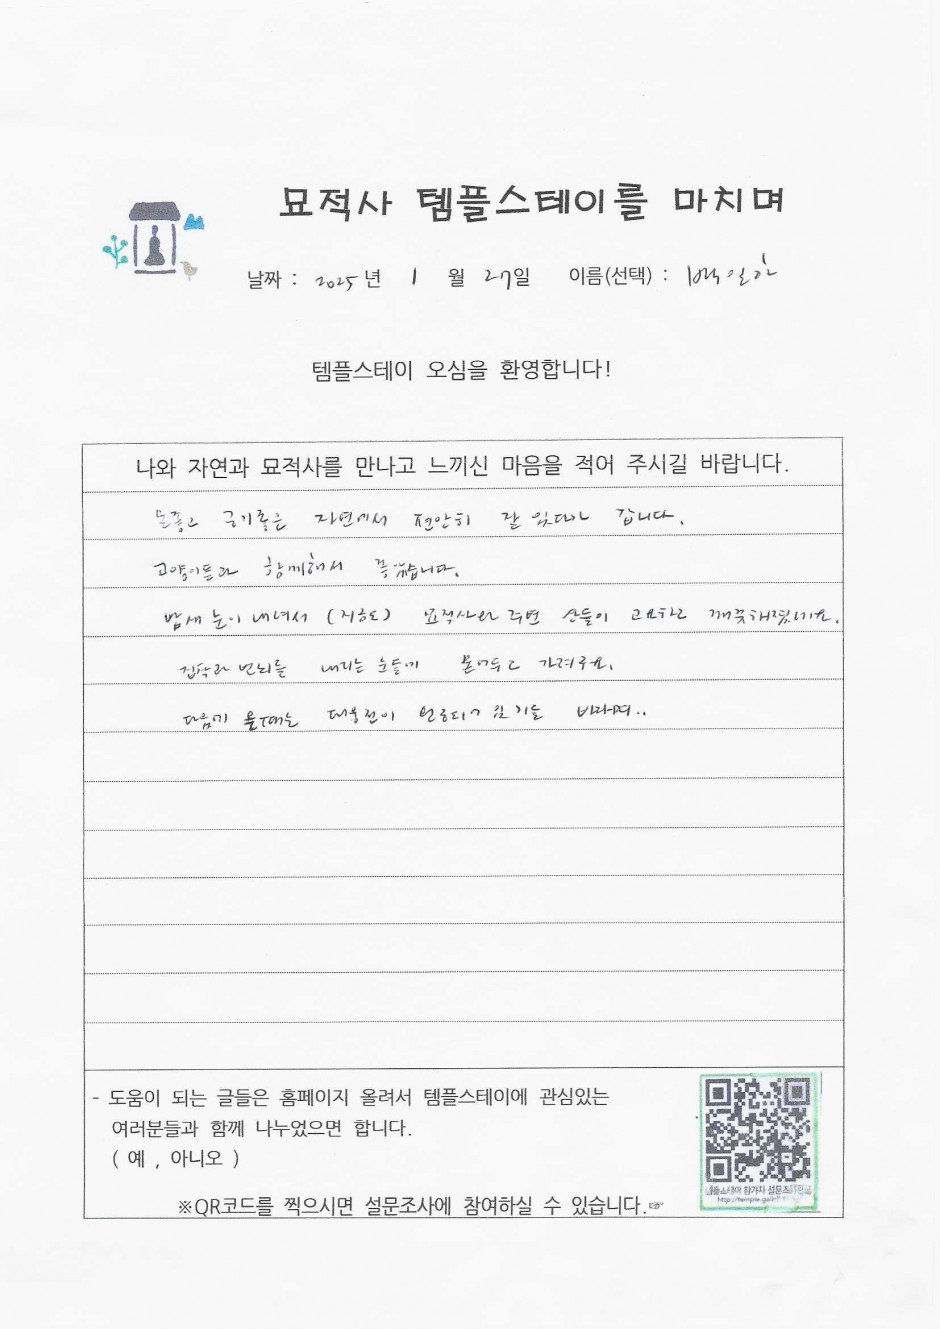 묘적사 템플스테이를 마치며
날짜 : 2025년 1 월 27일 이름(선택) : 백일한
템플스테이 오심을 환영합니다!
나와 자연과 묘적사를 만나고 느끼신 마음을 적어 주시길 바랍니다.
물좋고 공기좋은 자연에서 편안히 잘 있다가 갑니다.
고양이들과 함께해서 좋았습니다.
밤새 눈이 내려서 (지금도) 묘적사와 주변 산들이 고요하고 깨끗해졌네요.
집착과 번뇌를 내리는 눈들에 묻어두고 가려구요.
다음에 올때는 대웅전이 완공되어 있기를 바라며..
- 도움이 되는 글들은 홈페이지 올려서 템플스테이에 관심있는
여러분들과 함께 나누었으면 합니다.
( 예 , 아니오 )
※QR코드를 찍으시면 설문조사에 참여하실 수 있습니다.☞
템플스테이 참가자 설문조사